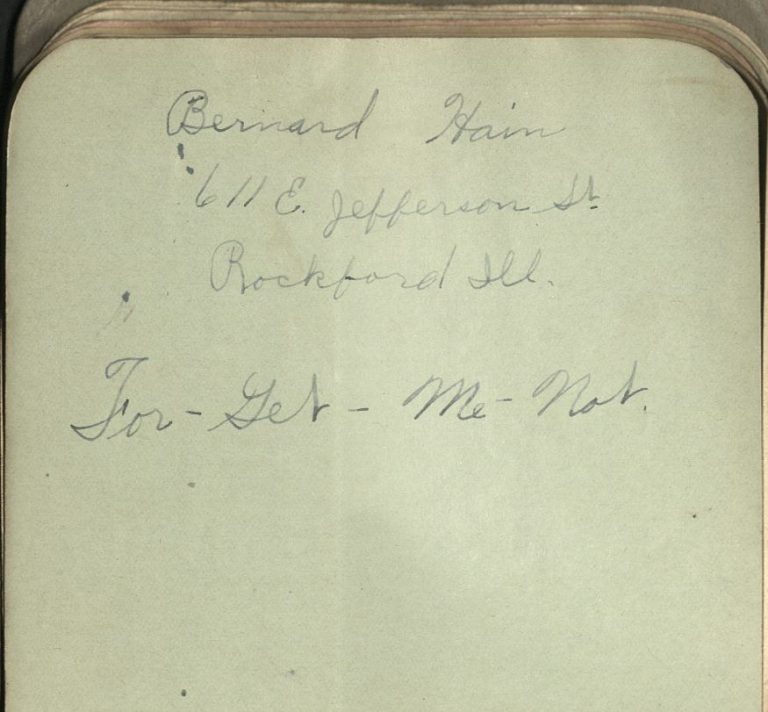 Bernard Hain
611 E. Jefferson St.
Rockford Ill.
For-Get-Me-Not.